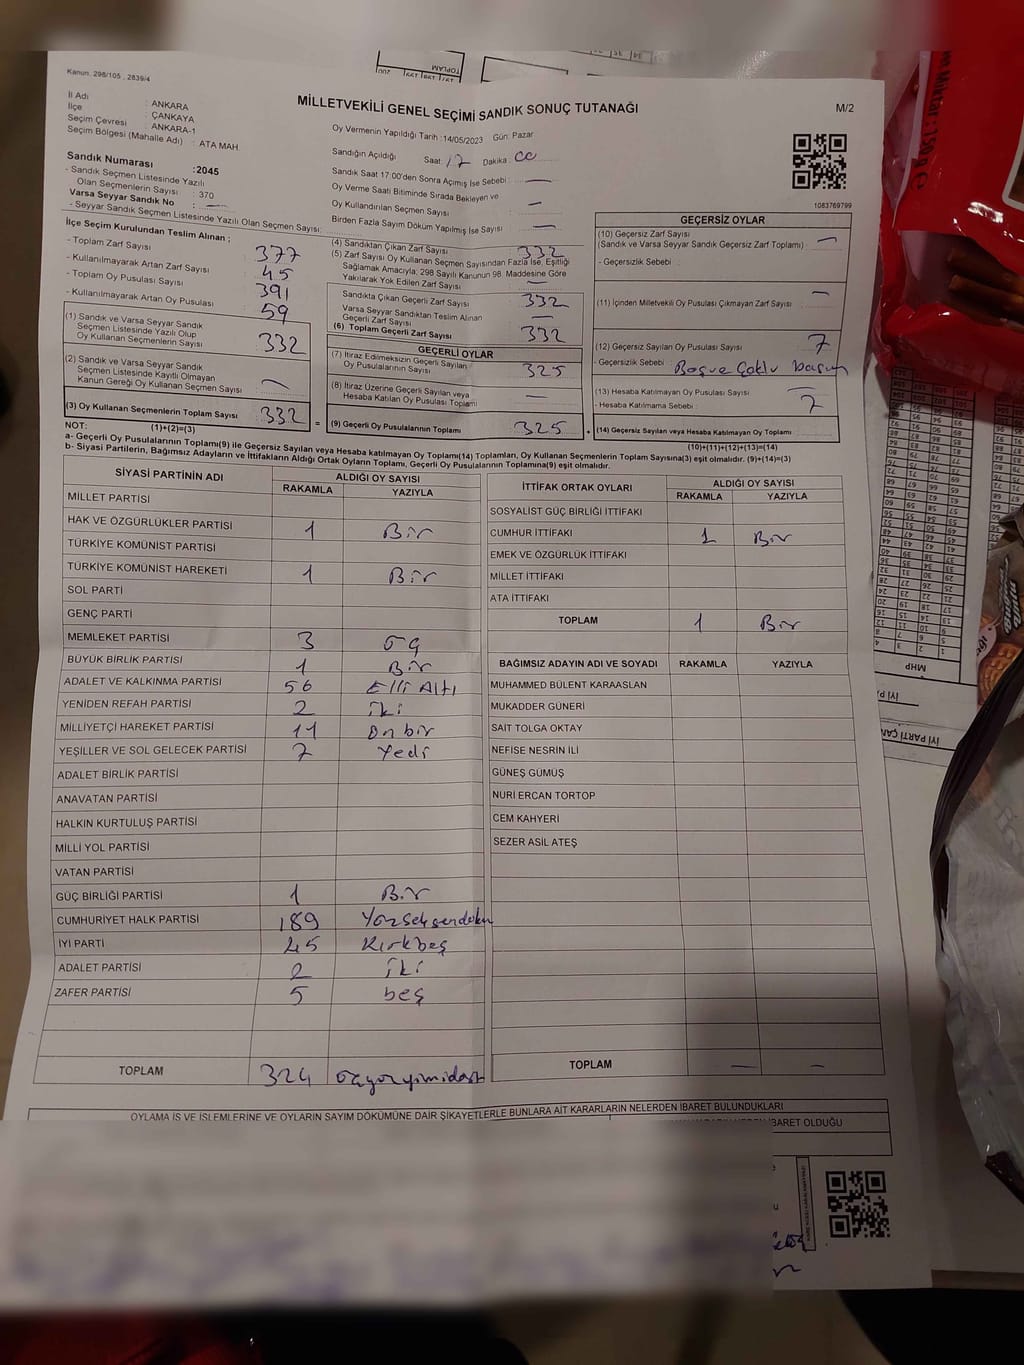 Kanun. 298/105 , 2839/4
İl Adı : ANKARA
İlçe : ÇANKAYA
Seçim Çevresi : ANKARA-1
Seçim Bölgesi (Mahalle Adı) : ATA MAH
MİLLETVEKİLİ GENEL SEÇİMİ SANDIK SONUÇ TUTANAĞI
M/2
Oy Vermenin Yapıldığı Tarih :14/05/2023 Gün: Pazar
Sandığın Açıldığı Saat: 17 Dakika: 00
Sandık Saat 17:00'den Sonra Açımış İse Sebebi : —
Oy Verme Saati Bitiminde Sırada Bekleyen ve
Oy Kullandırılan Seçmen Sayısı : —
Birden Fazla Sayım Döküm Yapılmış İse Sayısı : —
1083769799
Sandık Numarası :2045
- Sandık Seçmen Listesinde Yazılı
Olan Seçmenlerin Sayısı : 370
Varsa Seyyar Sandık No : —
- Seyyar Sandık Seçmen Listesinde Yazılı Olan Seçmen Sayısı:
İlçe Seçim Kurulundan Teslim Alınan ;
- Toplam Zarf Sayısı : 377
- Kullanılmayarak Artan Zarf Sayısı : 45
- Toplam Oy Pusulası Sayısı : 391
- Kullanılmayarak Artan Oy Pusulası : 59
(1) Sandık ve Varsa Seyyar Sandık
Seçmen Listesinde Yazılı Olup
Oy Kullanan Seçmenlerin Sayısı : 332
(2) Sandık ve Varsa Seyyar Sandık
Seçmen Listesinde Kayıtlı Olmayan
Kanun Gereği Oy Kullanan Seçmen Sayısı : —
(3) Oy Kullanan Seçmenlerin Toplam Sayısı : 332 =
(4) Sandıktan Çıkan Zarf Sayısı : 332
(5) Zarf Sayısı Oy Kullanan Seçmen Sayısından Fazla İse, Eşitliği
Sağlamak Amacıyla; 298 Sayılı Kanunun 98. Maddesine Göre
Yakılarak Yok Edilen Zarf Sayısı : —
Sandıkta Çıkan Geçerli Zarf Sayısı : 332
Varsa Seyyar Sandıktan Teslim Alınan
Geçerli Zarf Sayısı : —
(6) Toplam Geçerli Zarf Sayısı : 332
GEÇERLİ OYLAR
(7) İtiraz Edilmeksizin Geçerli Sayılan
Oy Pusulalarının Sayısı : 325
(8) İtiraz Üzerine Geçerli Sayılan veya
Hesaba Katılan Oy Pusulası Toplamı : —
(9) Geçerli Oy Pusulalarının Toplamı : 325 +
GEÇERSİZ OYLAR
(10) Geçersiz Zarf Sayısı
(Sandık ve Varsa Seyyar Sandık Geçersiz Zarf Toplamı) : —
- Geçersizlik Sebebi :
(11) İçinden Milletvekili Oy Pusulası Çıkmayan Zarf Sayısı : —
(12) Geçersiz Sayılan Oy Pusulası Sayısı : 7
- Geçersizlik Sebebi : Boş ve Çoklu basım
(13) Hesaba Katılmayan Oy Pusulası Sayısı : —
- Hesaba Katılmama Sebebi :
(14) Geçersiz Sayılan veya Hesaba Katılmayan Oy Toplamı : 7
NOT: (1)+(2)=(3) (10)+(11)+(12)+(13)=(14)
a- Geçerli Oy Pusulalarının Toplamı(9) ile Geçersiz Sayılan veya Hesaba katılmayan Oy Toplamı(14) Toplamları, Oy Kullanan Seçmenlerin Toplam Sayısına(3) eşit olmalıdır. (9)+(14)=(3)
b- Siyasi Partilerin, Bağımsız Adayların ve İttifakların Aldığı Ortak Oyların Toplamı, Geçerli Oy Pusulalarının Toplamına(9) eşit olmalıdır.
SİYASİ PARTİNİN ADI ALDIĞI OY SAYISI
RAKAMLA YAZIYLA
MİLLET PARTİSİ
HAK VE ÖZGÜRLÜKLER PARTİSİ 1 Bir
TÜRKİYE KOMÜNİST PARTİSİ
TÜRKİYE KOMÜNİST HAREKETİ 1 Bir
SOL PARTİ
GENÇ PARTİ
MEMLEKET PARTİSİ 3 üç
BÜYÜK BİRLİK PARTİSİ 1 Bir
ADALET VE KALKINMA PARTİSİ 56 Elli Altı
YENİDEN REFAH PARTİSİ 2 iki
MİLLİYETÇİ HAREKET PARTİSİ 11 On bir
YEŞİLLER VE SOL GELECEK PARTİSİ 7 Yedi
ADALET BİRLİK PARTİSİ
ANAVATAN PARTİSİ
HALKIN KURTULUŞ PARTİSİ
MİLLİ YOL PARTİSİ
VATAN PARTİSİ
GÜÇ BİRLİĞİ PARTİSİ 1 Bir
CUMHURİYET HALK PARTİSİ 189 Yüzseksendoku
İYİ PARTİ 45 Kırkbeş
ADALET PARTİSİ 2 iki
ZAFER PARTİSİ 5 beş
TOPLAM 324
İTTİFAK ORTAK OYLARI ALDIĞI OY SAYISI
RAKAMLA YAZIYLA
SOSYALİST GÜÇ BİRLİĞİ İTTİFAKI
CUMHUR İTTİFAKI 1 Bir
EMEK VE ÖZGÜRLÜK İTTİFAKI
MİLLET İTTİFAKI
ATA İTTİFAKI
TOPLAM 1 Bir
BAĞIMSIZ ADAYIN ADI VE SOYADI RAKAMLA YAZIYLA
MUHAMMED BÜLENT KARAASLAN
MUKADDER GÜNERİ
SAİT TOLGA OKTAY
NEFİSE NESRİN İLİ
GÜNEŞ GÜMÜŞ
NURİ ERCAN TORTOP
CEM KAHYERİ
SEZER ASİL ATEŞ
TOPLAM — —
OYLAMA İŞ VE İŞLEMLERİNE VE OYLARIN SAYIM DÖKÜMÜNE DAİR ŞİKAYETLERLE BUNLARA AİT KARARLARIN NELERDEN İBARET BULUNDUKLARI
İBARET OLDUĞU
Miktar : 150 g e
MHP
İYİ PARTİ
TOPLAM